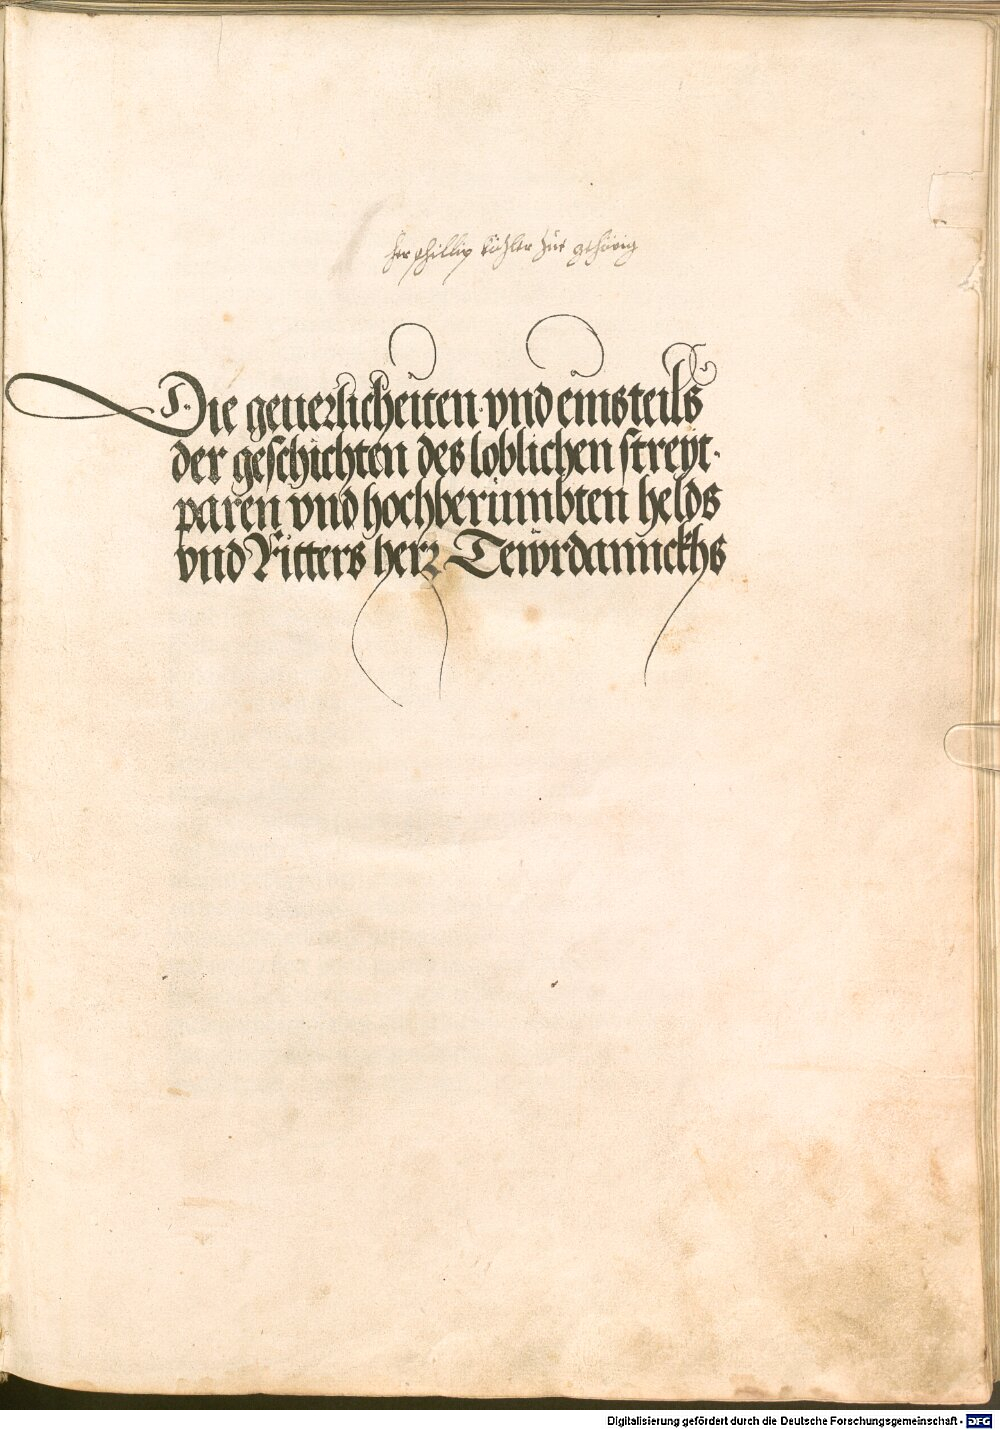 her phillip zůgehörig
Die geuerlicheiten vnd einsteils
der geschichten des loblichen streyt-
paren vnd hochberümbten helds
vnd Ritters herr Tewrdannckhs
Digitalisierung gefördert durch die Deutsche Forschungsgemeinschaft - DFG